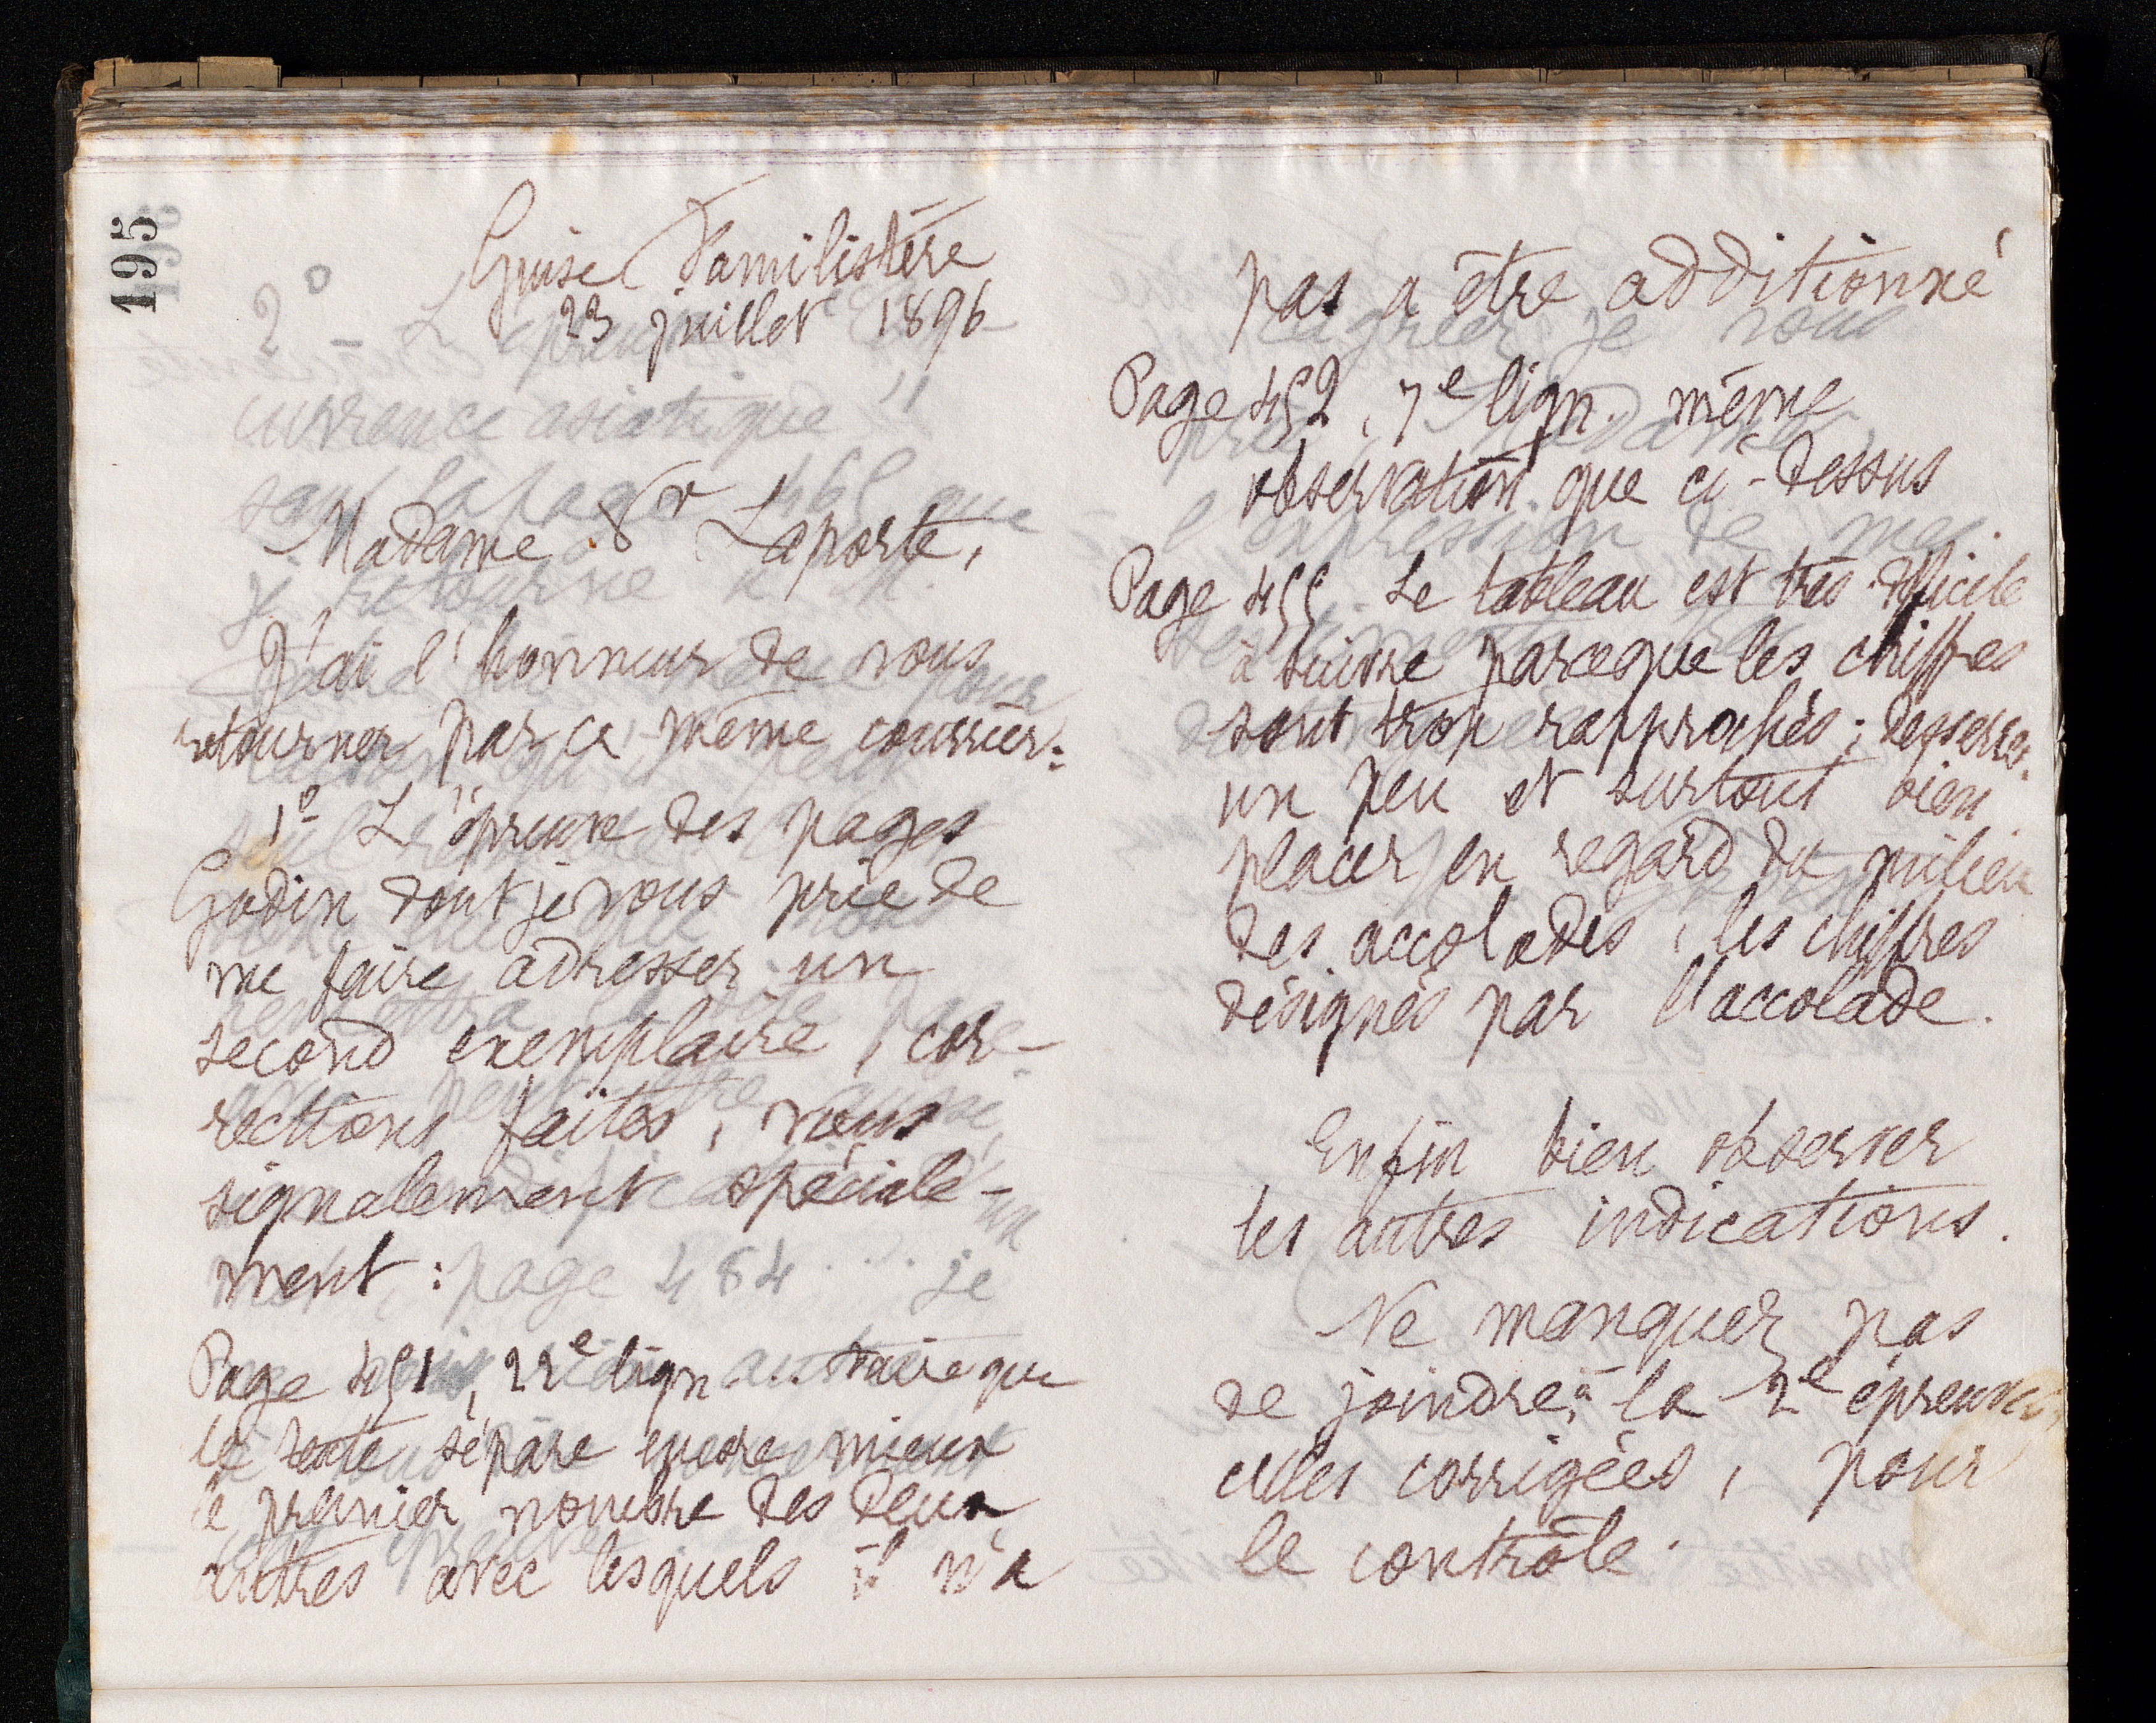 195
Guise Familistère
23 juillet 1896
Madame Vr Laporte,
J'ai l'honneur de vous
retourner par ce même courrier :
1º L'épreuve des pages
Godin dont je vous prie de
me faire adresser un
second exemplaire, cor-
rections faites, vous
signalement spéciale-
ment :
Page 451, 22e lign... faire que
le texte sépare encore mieux
le premier nombre des deux
autres avec lesquels il n'a
pas a être additionné
Page 452, 7e lign. même
observation que ci-dessus
Page 455 Le tableau est très difficile
à suivre parceque les chiffres
sont trop rapprochés ; desserrer
un peu et surtout bien
placer en regard du milieu
des accolades, les chiffres
désignés par l'accolade.
Enfin bien observer
les autres indications.
Ne manquer pas
de joindre à la 2e épreuve,
celles corrigées, pour
le contrôle.